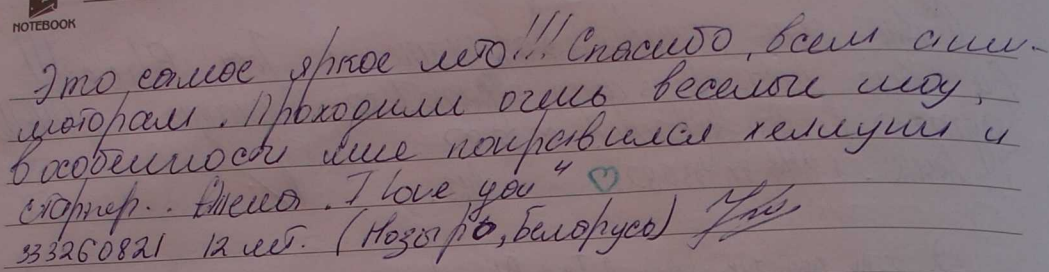 NOTEBOOK
Это самое яркое лето!!! Спасибо, всем ани-
маторам. Проходили очень веселые шоу,
в особенности мне понравился хеллуин и
старпер.. Алена. I love you" ♡
333260821 12 лет. (Мозырь, Беларусь)